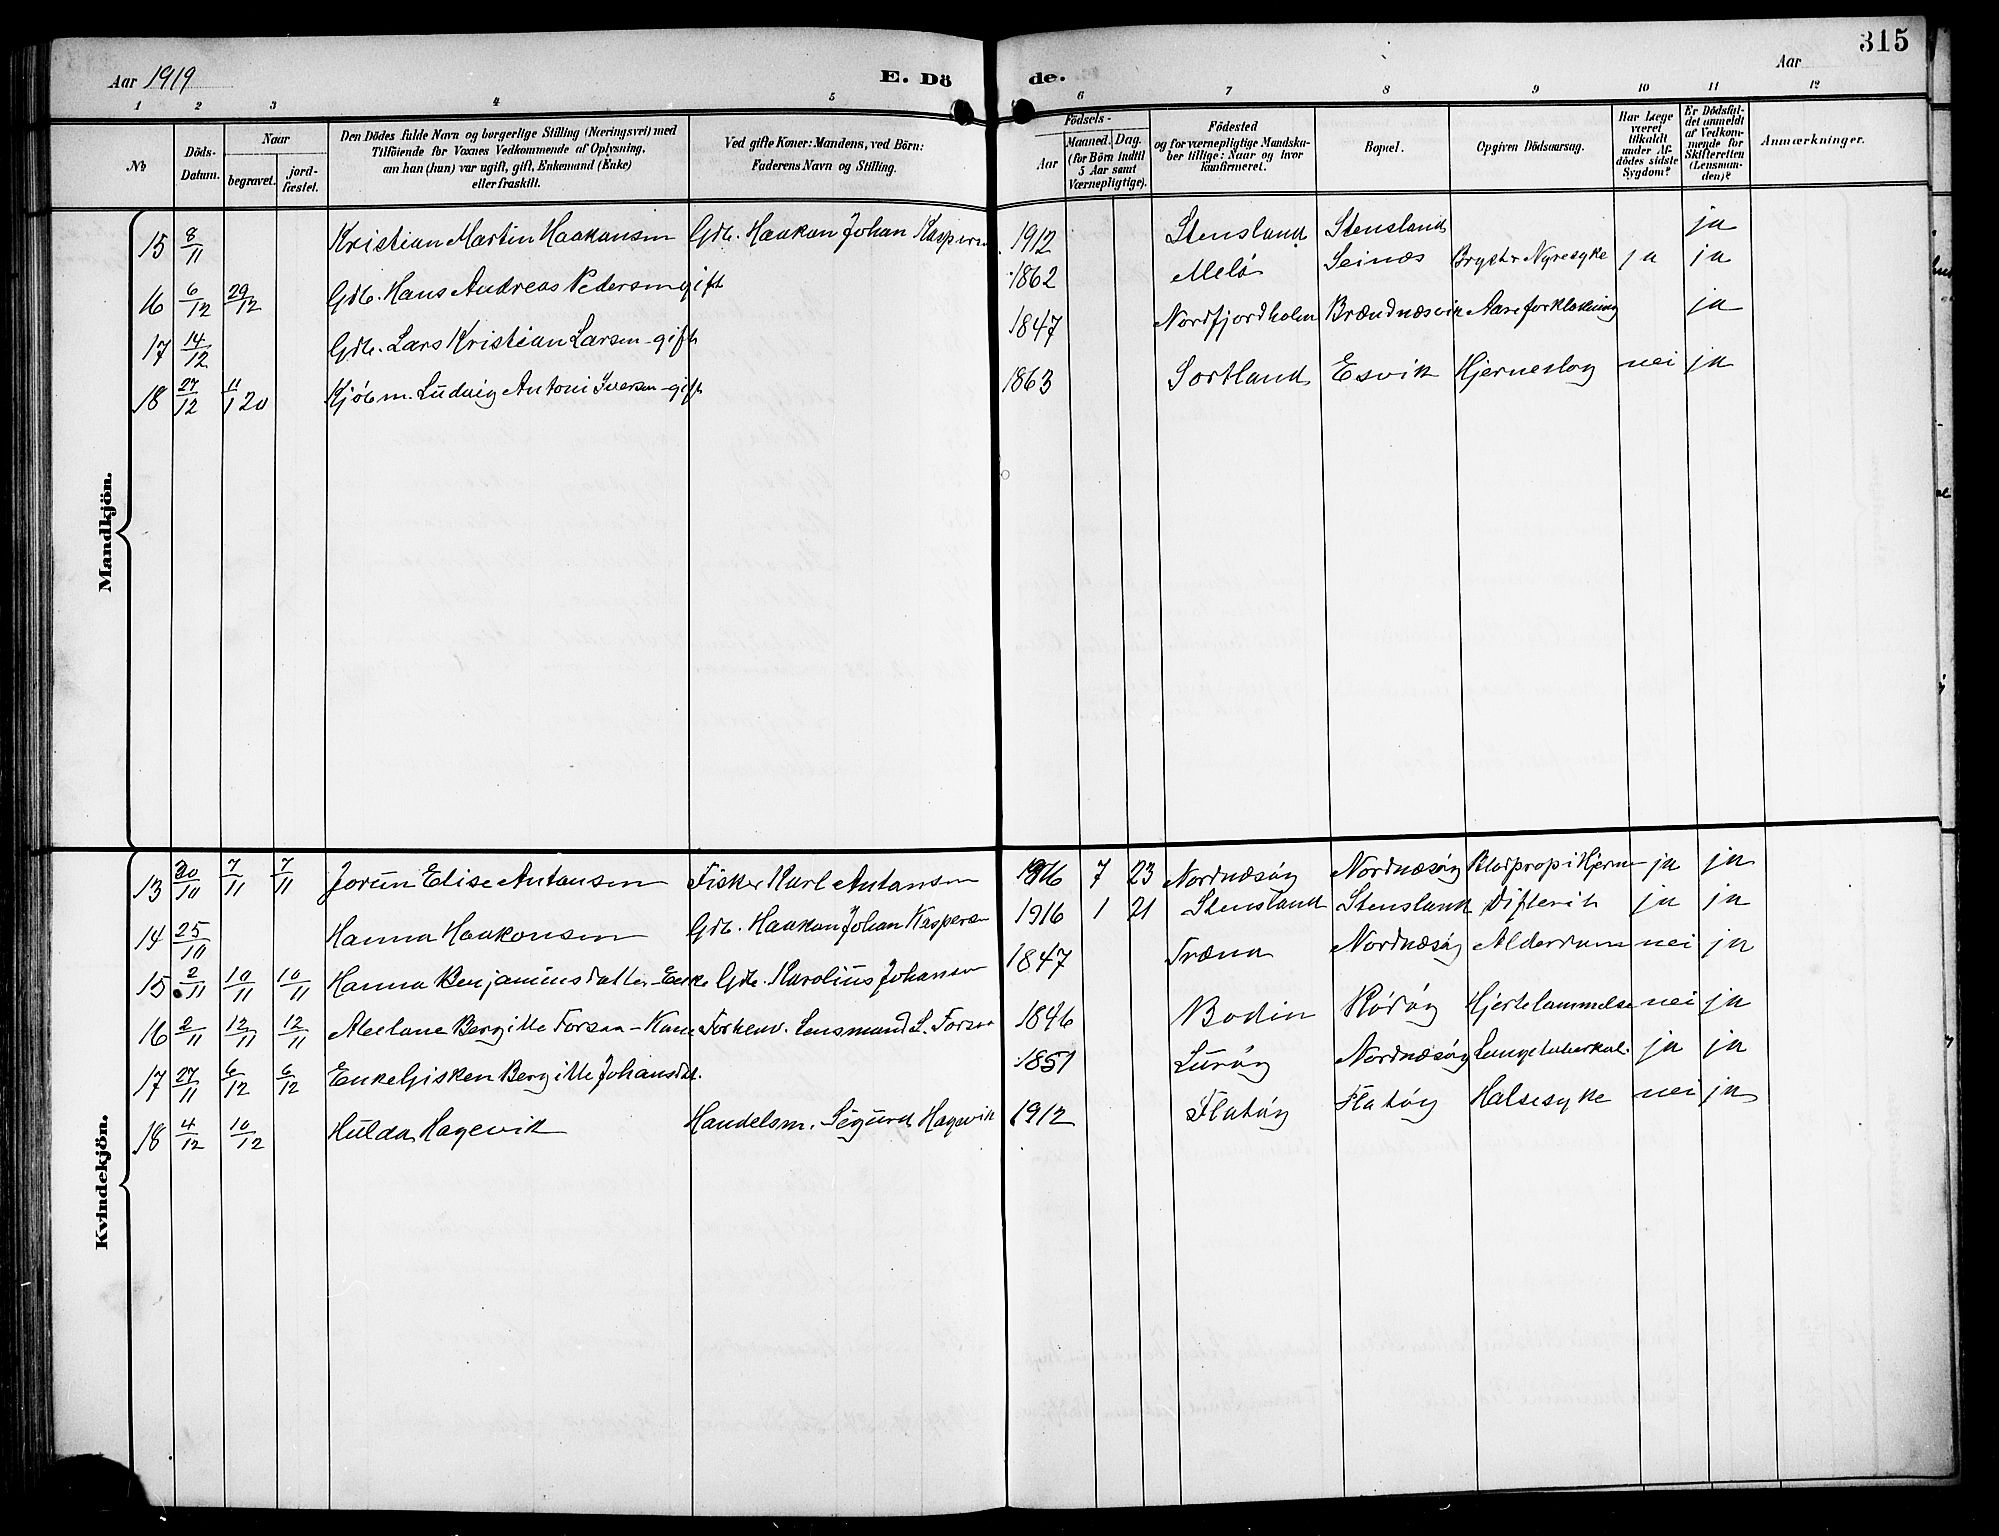 315
Aar 1919 E. Dö de. Aar
1 2 3 4 5 6 7 8 10 9 10 11 12
No Döds-Datum. Naar begravet. jord-fæstet. Den Dödes fulde Navn og borgerlige Stilling (Næringsvei) med Tilföiende for Voxnes Vedkommende af Oplysning, om han (hun) var ugift, gift, Enkemand (Enke) eller fraskilt. Ved gifte Koner: Mandens, ved Börn: Faderens Navn og Stilling. Födsels- Aar Maaned. Dag. (for Börn indtil 5 Aar samt Værnepligtige). Födested og for værnepligtige Mandskaber tillige: Naar og hvor konfirmeret. Bopæl. Opgiven Dödsaarsag. Har Læge været tilkaldt under Afdödes sidste Sygdom? Er Dödsfaldet anmeldt af Vedkommende for Skifteretten (Lensmanden)? Anmærkninger.
Mandkjön.
15 8/11 Kristian Martin Haakonsen Gdb. Haakon Johan Kaspersen 1912 Stensland Stensland ja
16 6/12 29/12 Gdb. Hans Andreas Pedersen gift 1862 Melö Seinæs Bryst & Nyresyke ja ja
17 14/12 Gdb. Lars Kristian Larsen - gift 1847 Nordfjordholm Brændnæsvik Aareforkalkning ja
18 27/12 11/1 20 Kjöbm. Ludvig Antoni Iversen - gift 1863 Sortland Esvik Hjerneslag nei ja
Kvindekjön.
13 30/10 7/11 7/11 Jorun Elise Antonsen Fisker Karl Antonsen 1916 7 23 Nordnæsöy Nordnæsöy Blodprop i Hjernen ja ja
14 25/10 Hanna Haakonsen Gdb. Haakon Johan Kaspersen 1916 1 21 Stensland Stensland Difterit ja ja
15 2/11 10/11 10/11 Hanna Benjaminsdatter - Enke Gdb. Karolius Johansen 1847 Træna Nordnæsöy Alderdom nei ja
16 2/11 12/11 12/11 Bergitte Forsaa - Kone Forhenv. Lensmand L. Forsaa 1846 Bodin Rödöy Hjertelammelse nei ja
17 27/11 6/12 6/12 Enke Gisken Bergitte Johansdat. 1851 Luröy Nordnæsöy Lungetuberkul. ja ja
18 4/12 10/12 Hulda Hagevik Handelsm. Sigurd Hagevik 1912 Flatöy Flatöy Halsesyke nei ja